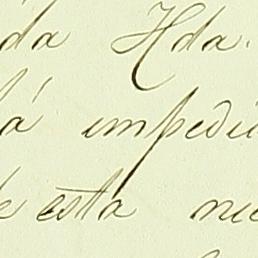 da Hda.
á impedi
e está